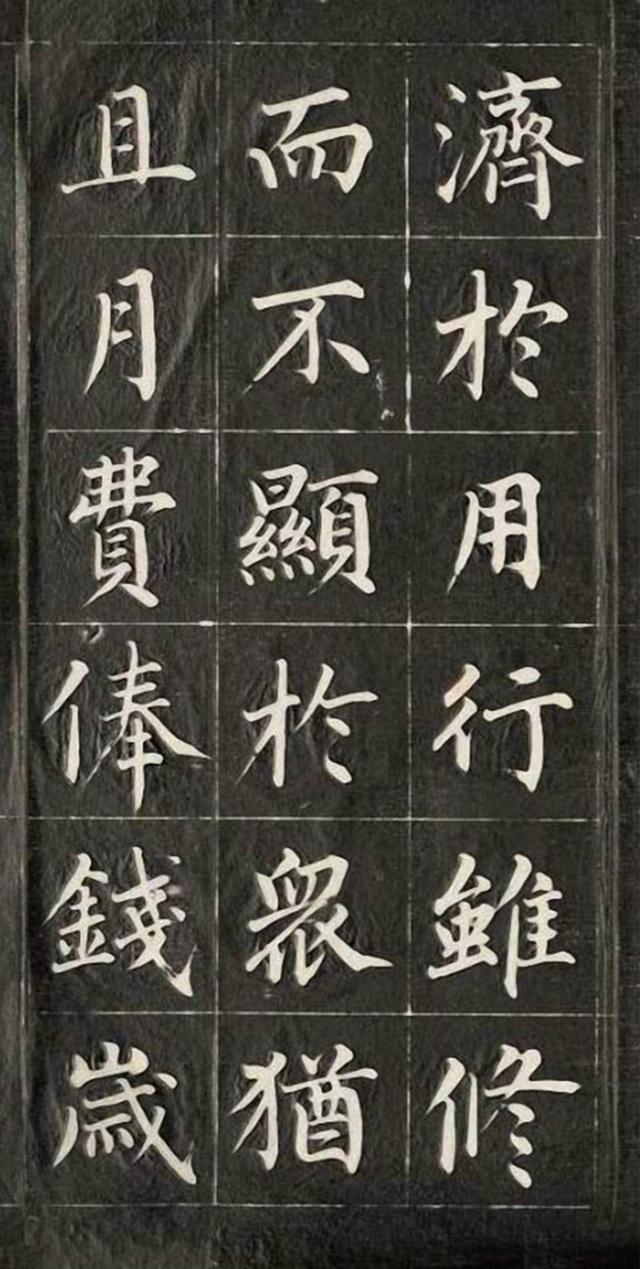 濟於用行雖修
而不顯於衆猶
且月費俸錢歲